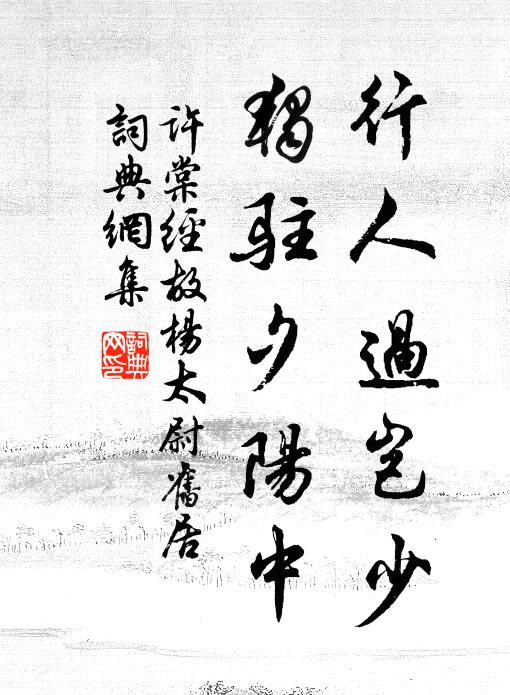 行人過豈少
獨駐夕陽中
許棠經故楊太尉舊居
詞典網集
詞典網印